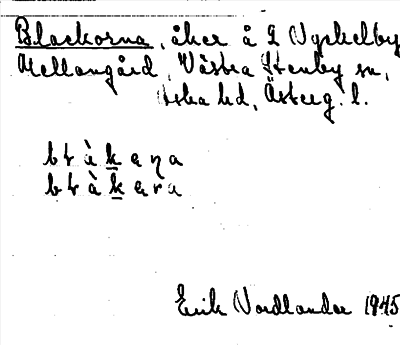 Blackorna, åker å 2 Nyckelby
Mellangård, Västra Stenby sn,
Aska hd, Österg. l.
btàkeṇa
btàkera
Erik Nordlander 1945